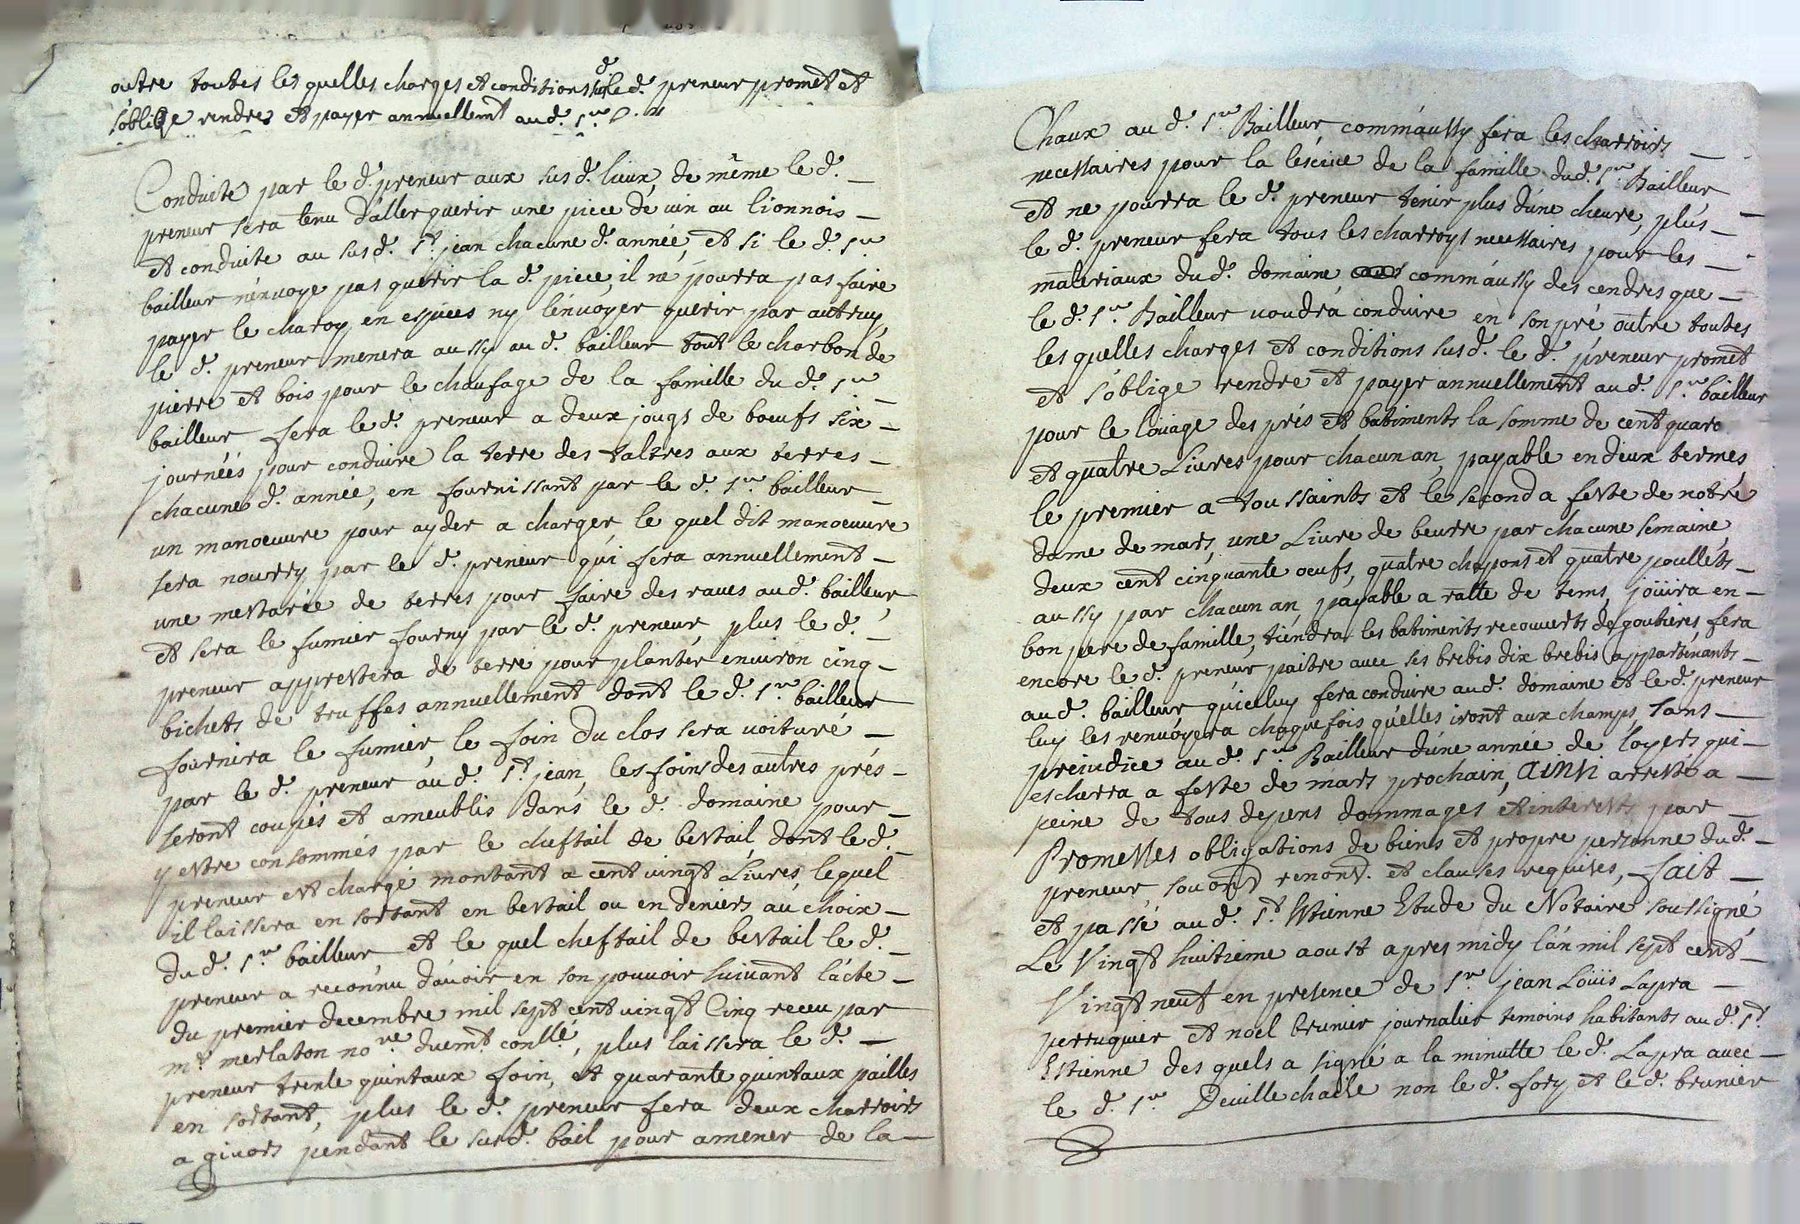 outre toutes les quelles charges et conditions sus d. le d. preneur promet et
s'oblige rendre et payer annuellemt au d. sr
Conduite par le d. preneur aux sus d. lieux, de même le d.
preneur sera tenu d'aller querir une piece de vin au lionnois
et conduite au sus d. st. jean chacune d. année, et si le d. sr
bailleur n'envoye pas querir la d. piece, il ne pourra pas faire
payer le charoy en espèces ny l'envoyer querir par autruy,
le d. preneur menera aussy au d. bailleur tout le charbon de
pierre et bois pour le chaufage de la famille du d. sr
bailleur fera le d. preneur a deux jougs de bœufs six
journéés pour conduire la terre des taltres aux terres
chacune d. année, en fournissant par le d. sr. bailleur
un manoeuvre pour ayder a charger le quel dit manoeuvre
sera nourry par le d. preneur qui fera annuellement
une mestarée de terres pour faire des raves au d. bailleur
et sera le fumier fourny par le d. preneur, plus le d.
preneur apprestera de terre pour planter environ cinq
bichets de truffes annuellement dont le d. sr bailleur
fournira le fumier, le foin du clos sera voituré
par le d. preneur au d. st. jean, les foins des autres prés
seront coupés et ameublis dans le d. domaine pour
y estre consommés par le cheftail de bestail, dont le d.
preneur est chargé montant a cent vingt Livres, lequel
il laissera en sortant en bestail ou en deniers au choix
du d. sr bailleur et le quel cheftail de bestail le d.
preneur a reconnu d'avoir en son pouvoir suivant l'acte
du premier decembre mil sept cent vingt Cinq receu par
me merlaton nore duemt. conllé, plus laissera le d.
preneur trente quintaux foin, et quarante quintaux pailles
en sortant, plus le d. preneur fera deux charroirs
a givors pendant le sus d. bail pour amener de la
Chaux au d. sr Bailleur comm'aussy fera les charroirs
necessaires pour la lescive de la famille du d. sr. Bailleur
et ne pourra le d. preneur tenir plus d'une chevre, plus
le d. preneur fera tous les charroys necessaires pour les
materiaux du d. domaine comm'aussy des cendres que
le d. sr Bailleur voudra conduire en son pré outre toutes
les quelles charges et conditions sus d. le d. preneur promet
et s'oblige rendre et payer annuellement au d. sr bailleur
pour le loüage des prés et batiments la somme de cent quare
et quatre Livres pour chacun an, payable en deux termes
le premier a toussaints et le second a feste de notre
dame de mars, une Livre de beurre par chacune semaine,
deux cent cinquante oeufs, quatre chapons et quatre poullets
aussy par chacun an, payable a ratte de tems, joüira en
bon pere de famille, tiendra les batiments recouverts de goutieres fera
encore le d. preneur paitre avec ses brebis dix brebis appartenants
au d. bailleur qu'icelluy fera conduire au d. domaine et le d. preneur
luy les renvoyera chaque fois qu'elles iront aux champs, sans
prejudice au d. sr. Bailleur d'une année de loyers qui
escherra a feste de mars prochain, ainsi arresté a
peine de tous depens dommages et interests par
Promesses obligations de biens et propre personne du d.
preneur, renond. et clauses requises, fait
et passé au d. st Estienne Etude du Notaire soussigné
Le Vingt huitieme aoust apres midy l'an mil sept cent
Vingt neuf en presence de sr jean Loüis Lapra
perruquier et noel brunier journalier temoins habitants au d. st.
Estienne des quels a signé a la minutte le d. Lapra avec
le d. sr Devillechaise non le d. fory et le d. brunier